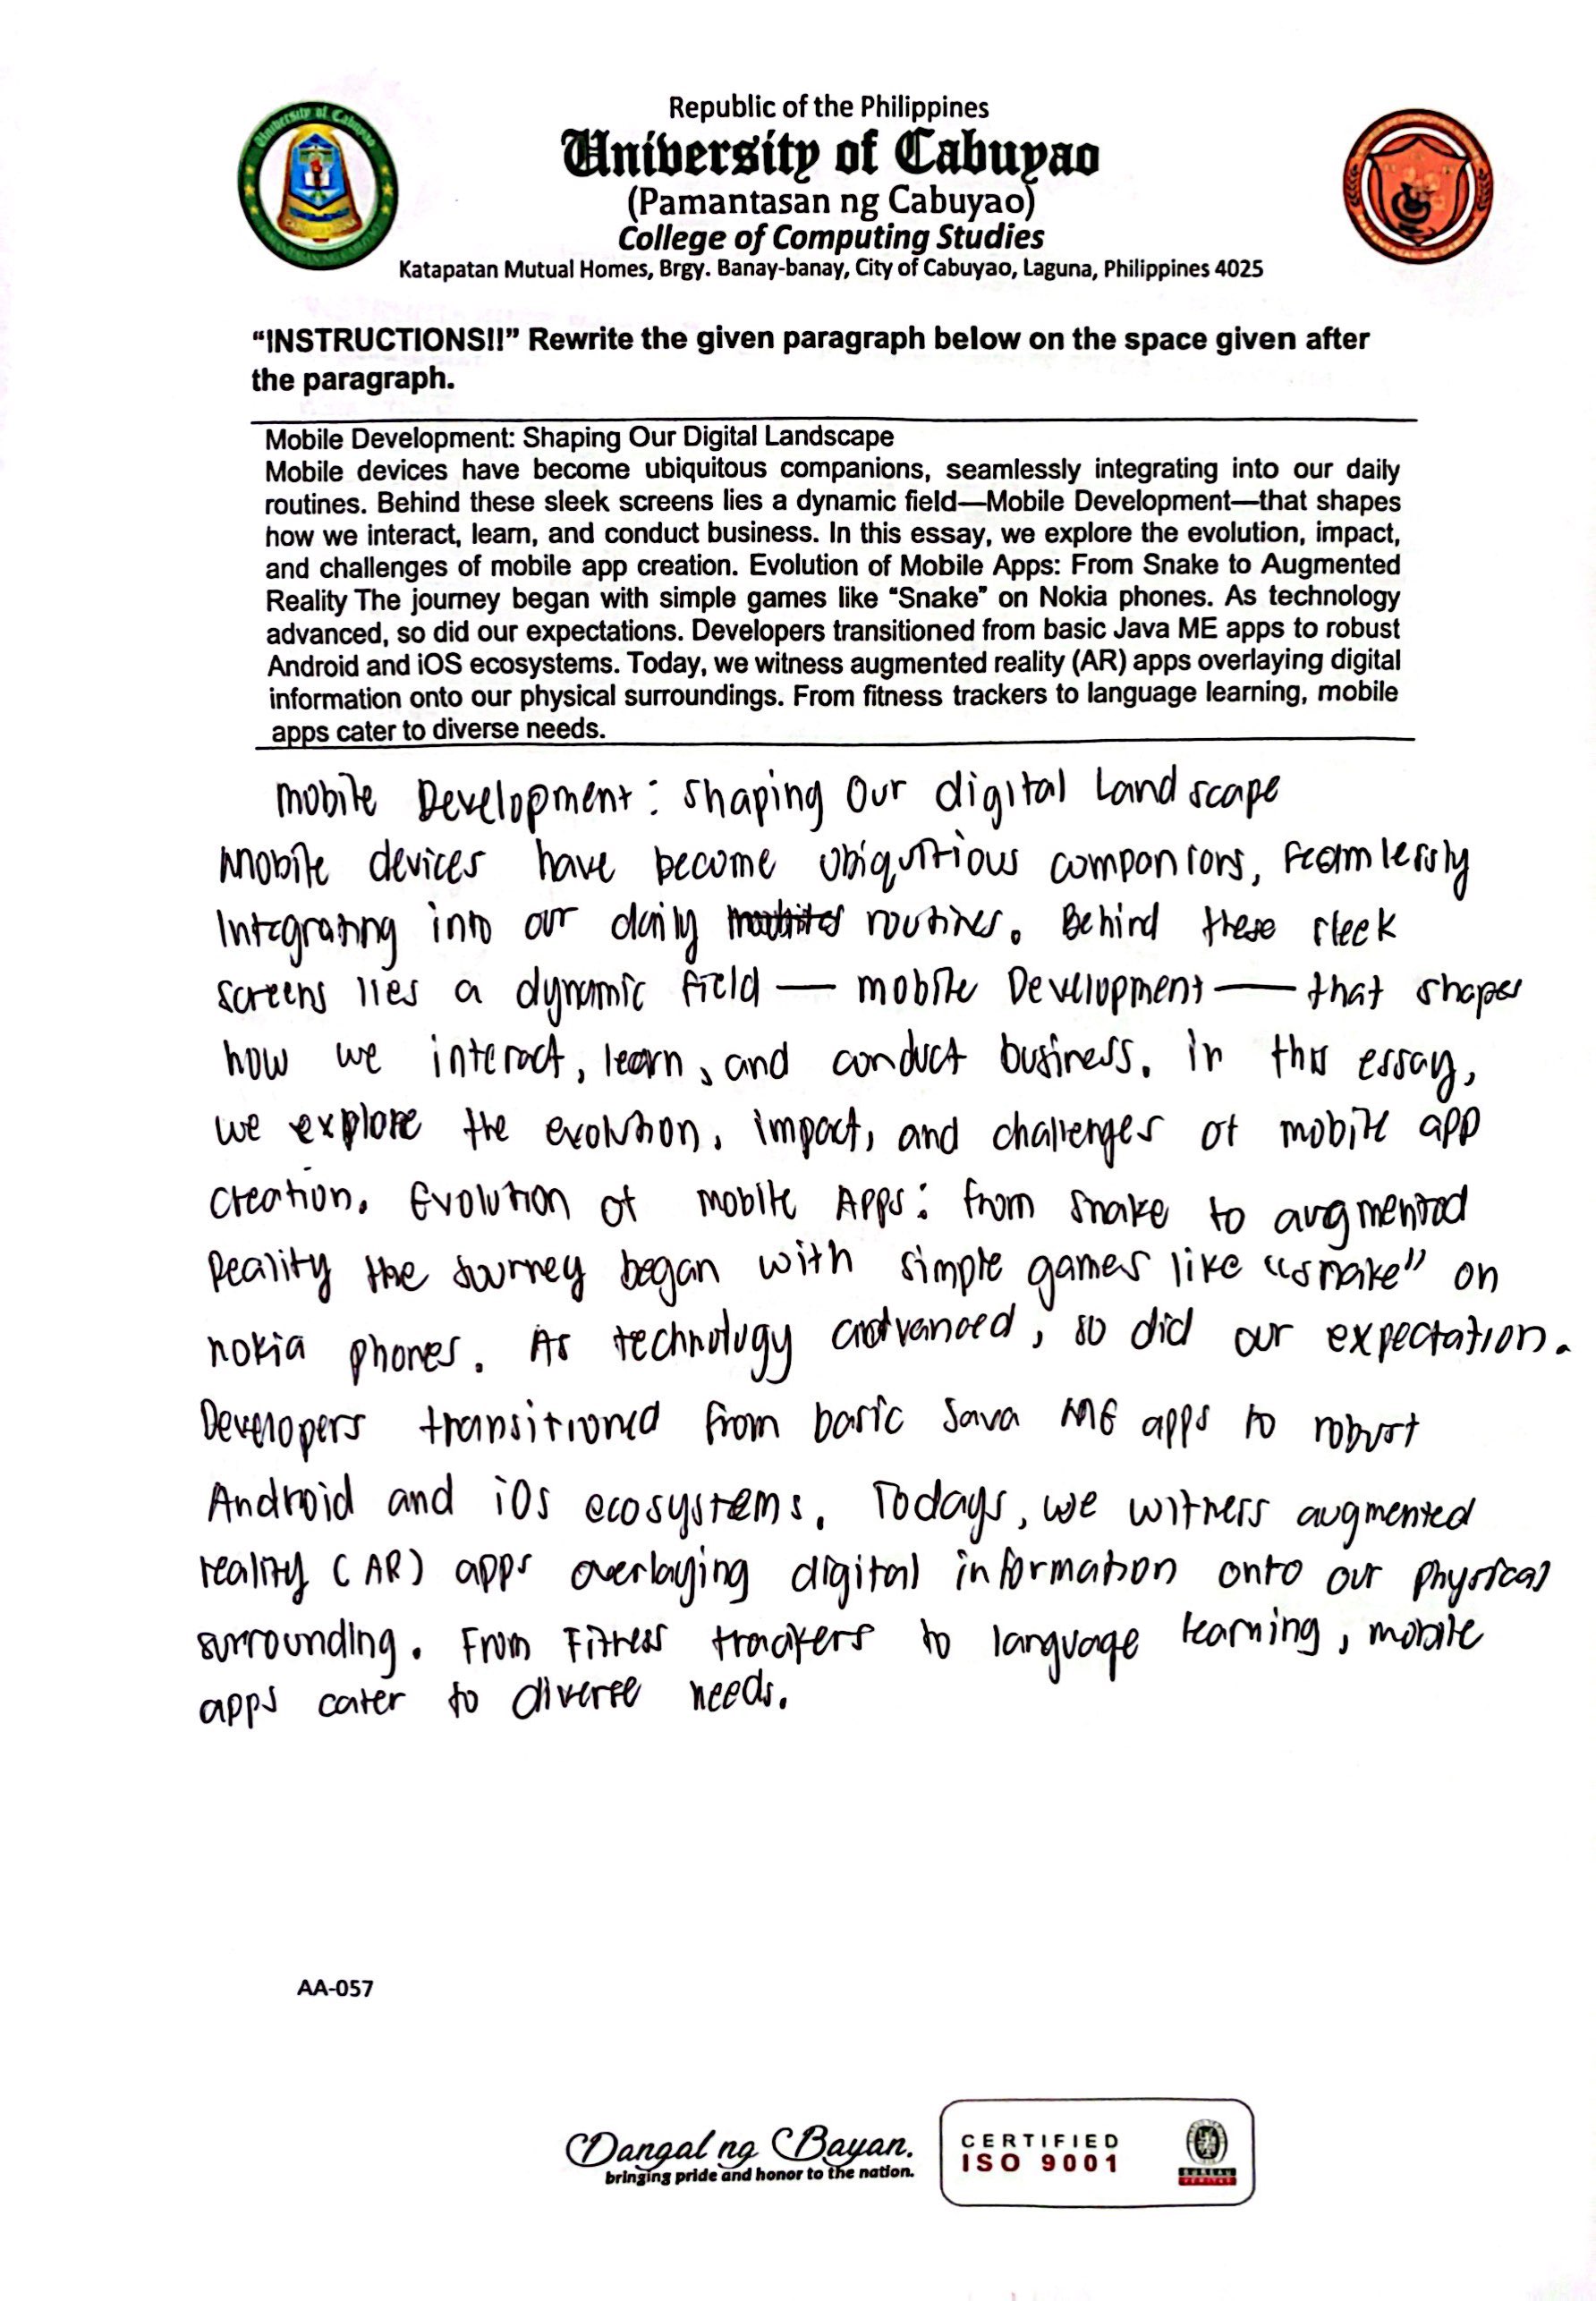 Republic of the Philippines
University of Cabuyao
(Pamantasan ng Cabuyao)
College of Computing Studies
Katapatan Mutual Homes, Brgy. Banay-banay, City of Cabuyao, Laguna, Philippines 4025
“INSTRUCTIONS!!” Rewrite the given paragraph below on the space given after
the paragraph.
Mobile Development: Shaping Our Digital Landscape
Mobile devices have become ubiquitous companions, seamlessly integrating into our daily
routines. Behind these sleek screens lies a dynamic field—Mobile Development—that shapes
how we interact, learn, and conduct business. In this essay, we explore the evolution, impact,
and challenges of mobile app creation. Evolution of Mobile Apps: From Snake to Augmented
Reality The journey began with simple games like “Snake” on Nokia phones. As technology
advanced, so did our expectations. Developers transitioned from basic Java ME apps to robust
Android and iOS ecosystems. Today, we witness augmented reality (AR) apps overlaying digital
information onto our physical surroundings. From fitness trackers to language learning, mobile
apps cater to diverse needs.
mobile Development: Shaping Our digital Landscape
Mobile devices have become ubiquitious companions, seamlessly
Integrating into our daily routines. Behind these sleek
screens lies a dynamic field — mobile Development — that shapes
how we interact, learn, and conduct business. in this essay,
we explore the evolution, impact, and challenges of mobile app
creation. Evolution of mobile Apps: from snake to augmented
Reality the journey began with simple games like “snake” on
nokia phones. As technology advanced, so did our expectation.
Developers transitioned from basic Java ME apps to robust
Android and iOs ecosystems. Todays, we witness augmented
reality (AR) apps overlaying digital information onto our physical
surrounding. From Fitness trackers to language learning, mobile
apps cater to diverse needs.
AA-057
Dangal ng Bayan.
bringing pride and honor to the nation.
CERTIFIED
ISO 9001
BUREAU
VERITAS